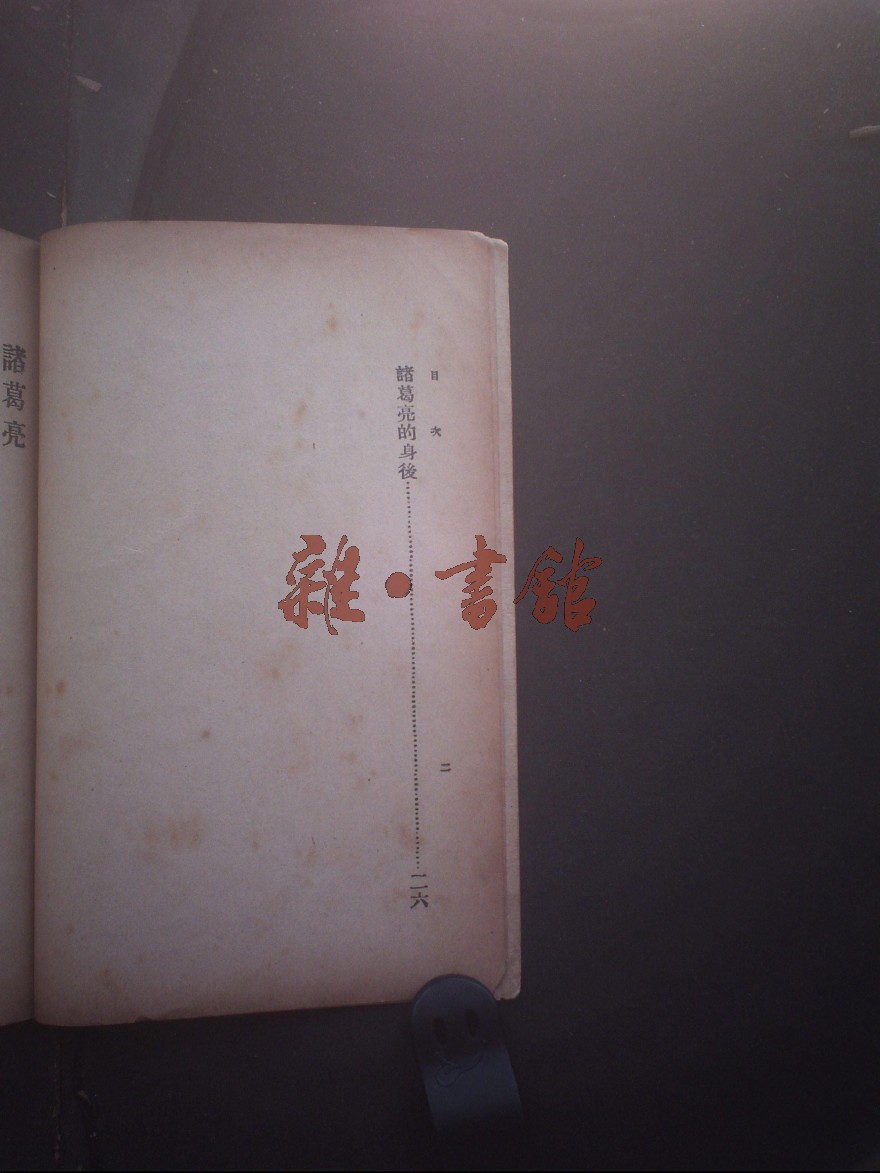 目次 二
諸葛亮的身後……一一六
諸葛亮
雜·書館